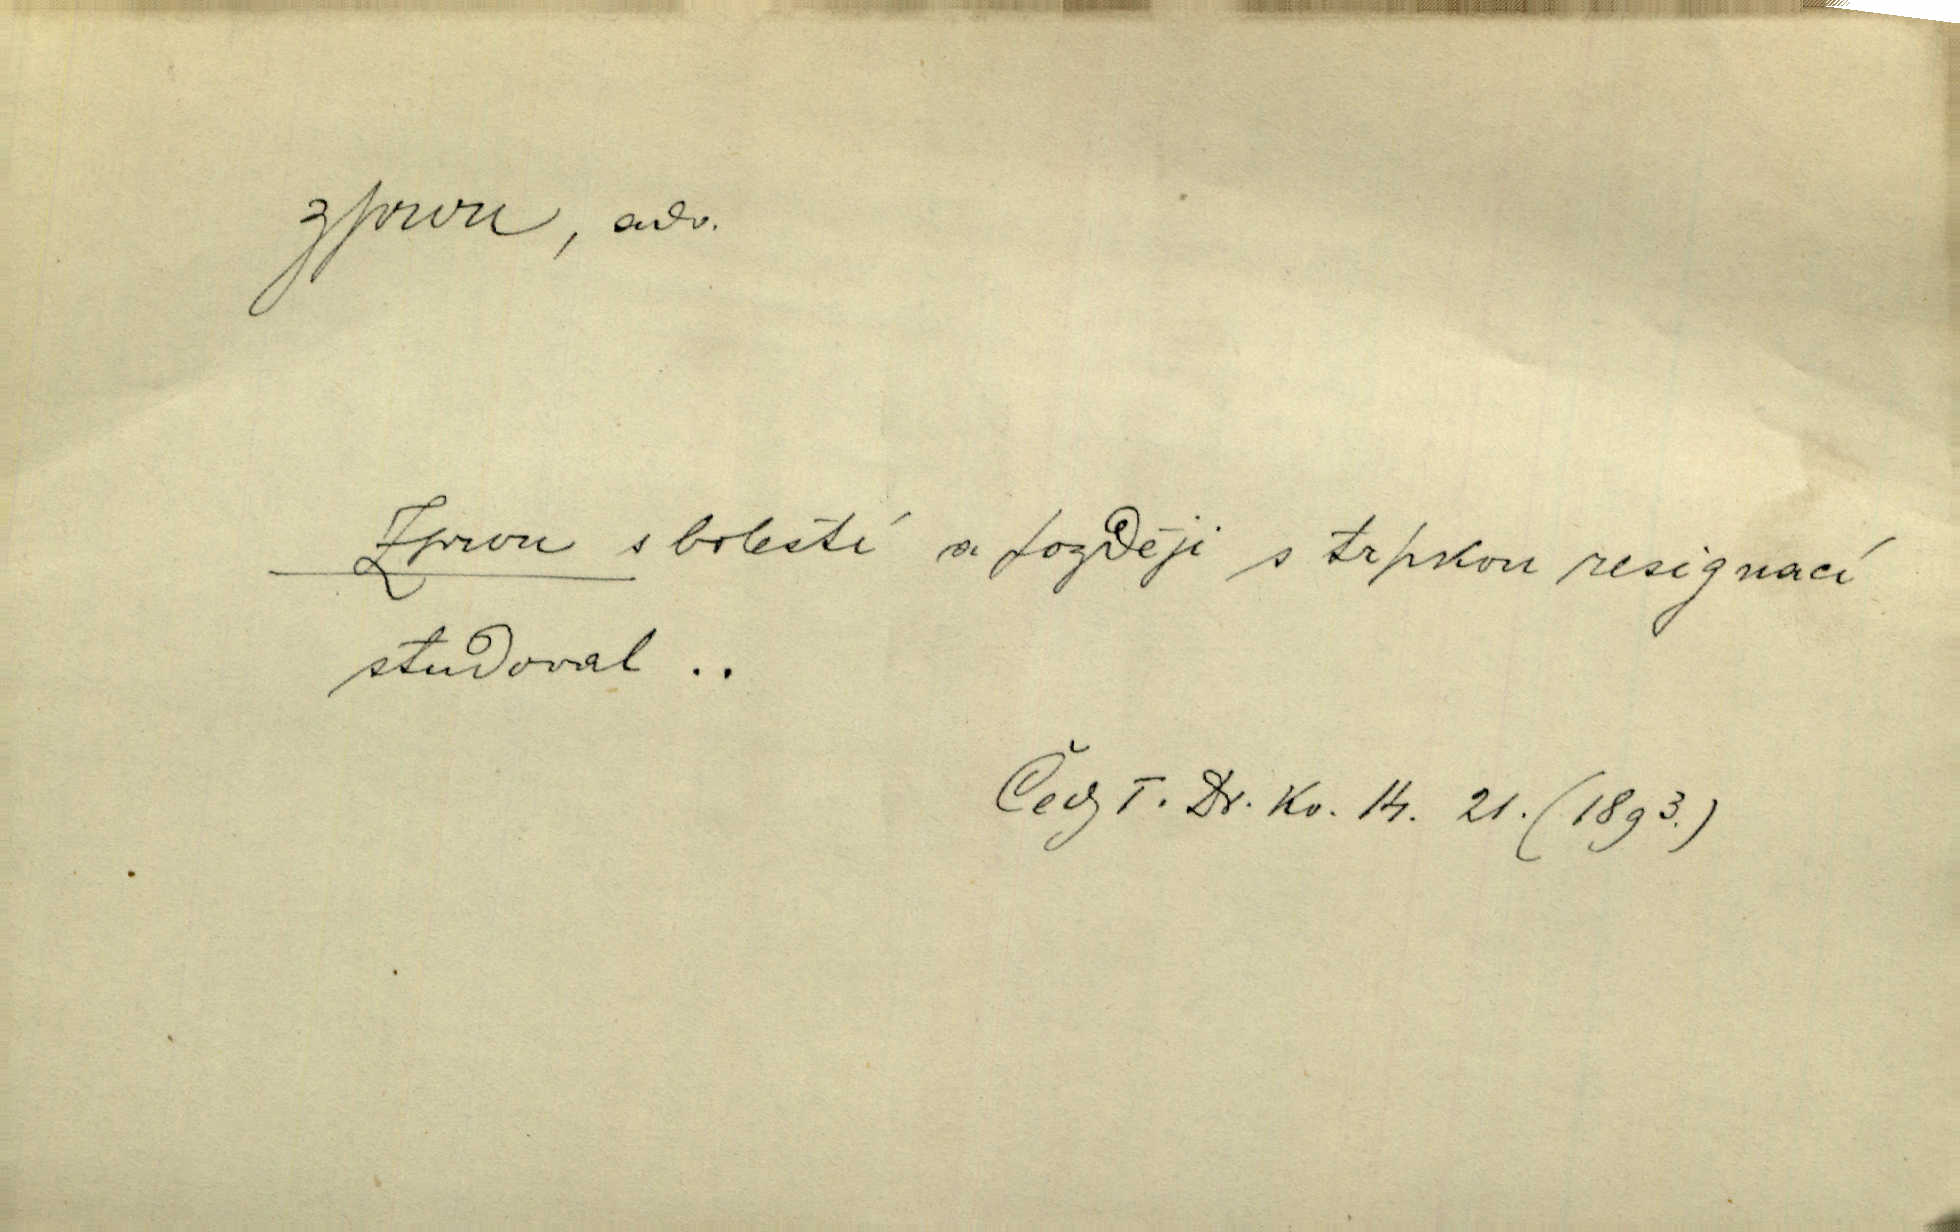 zprvu, adv.
Zprvu s bolestí a později s trpkou resignací
studoval ..
Čech T. Dr. Kv. 14. 21. (1893.)